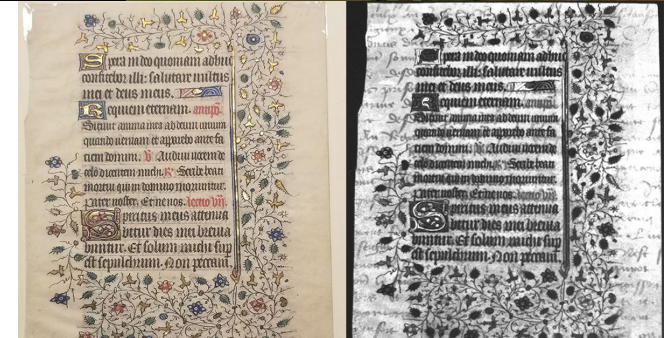 Spera in deo quoniam adhuc
confitebor illi: salutare vultus
mei et deus meus.
Requiem eternam. antiph.
Sitivit anima mea ad deum vivum
quando veniam et apparebo ante fa
ciem domini. ℣ Audivi vocem de
celo dicentem michi. ℟ Scribe beati
mortui qui in domino moriuntur.
Pater noster. Et ne nos. lectio vii.
Spiritus meus attenua
bitur dies mei brevia
buntur. Et solum michi sup
est sepulchrum. Non peccavi.
Spera in deo quoniam adhuc
confitebor illi: salutare vultus
mei et deus meus.
Requiem eternam. antiph.
Sitivit anima mea ad deum vivum
quando veniam et apparebo ante fa
ciem domini. ℣ Audivi vocem de
celo dicentem michi. ℟ Scribe beati
mortui qui in domino moriuntur.
Pater noster. Et ne nos. lectio vii.
Spiritus meus attenua
bitur dies mei brevia
buntur. Et solum michi sup
est sepulchrum. Non peccavi.